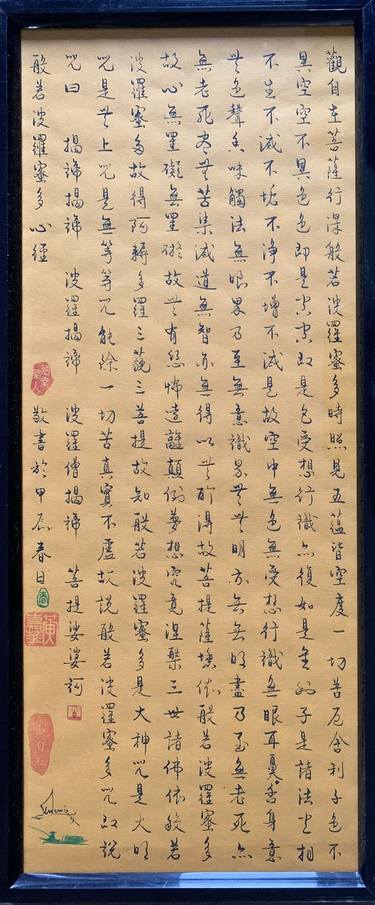 觀自在菩薩行深般若波羅蜜多時照見五蘊皆空度一切苦厄舍利子色不
異空空不異色色即是空空即是色受想行識亦復如是舍利子是諸法空相
不生不滅不垢不淨不增不減是故空中無色無受想行識無眼耳鼻舌身意
無色聲香味觸法無眼界乃至無意識界無無明亦無無明盡乃至無老死亦
無老死盡無苦集滅道無智亦無得以無所得故菩提薩埵依般若波羅蜜多
故心無罣礙無罣礙故無有恐怖遠離顛倒夢想究竟涅槃三世諸佛依般若
波羅蜜多故得阿耨多羅三藐三菩提故知般若波羅蜜多是大神咒是大明
咒是無上咒是無等等咒能除一切苦真實不虛故說般若波羅蜜多咒即說
咒曰 揭諦揭諦 波羅揭諦 波羅僧揭諦 菩提娑婆訶
般若波羅蜜多心經 敬書於甲辰春日